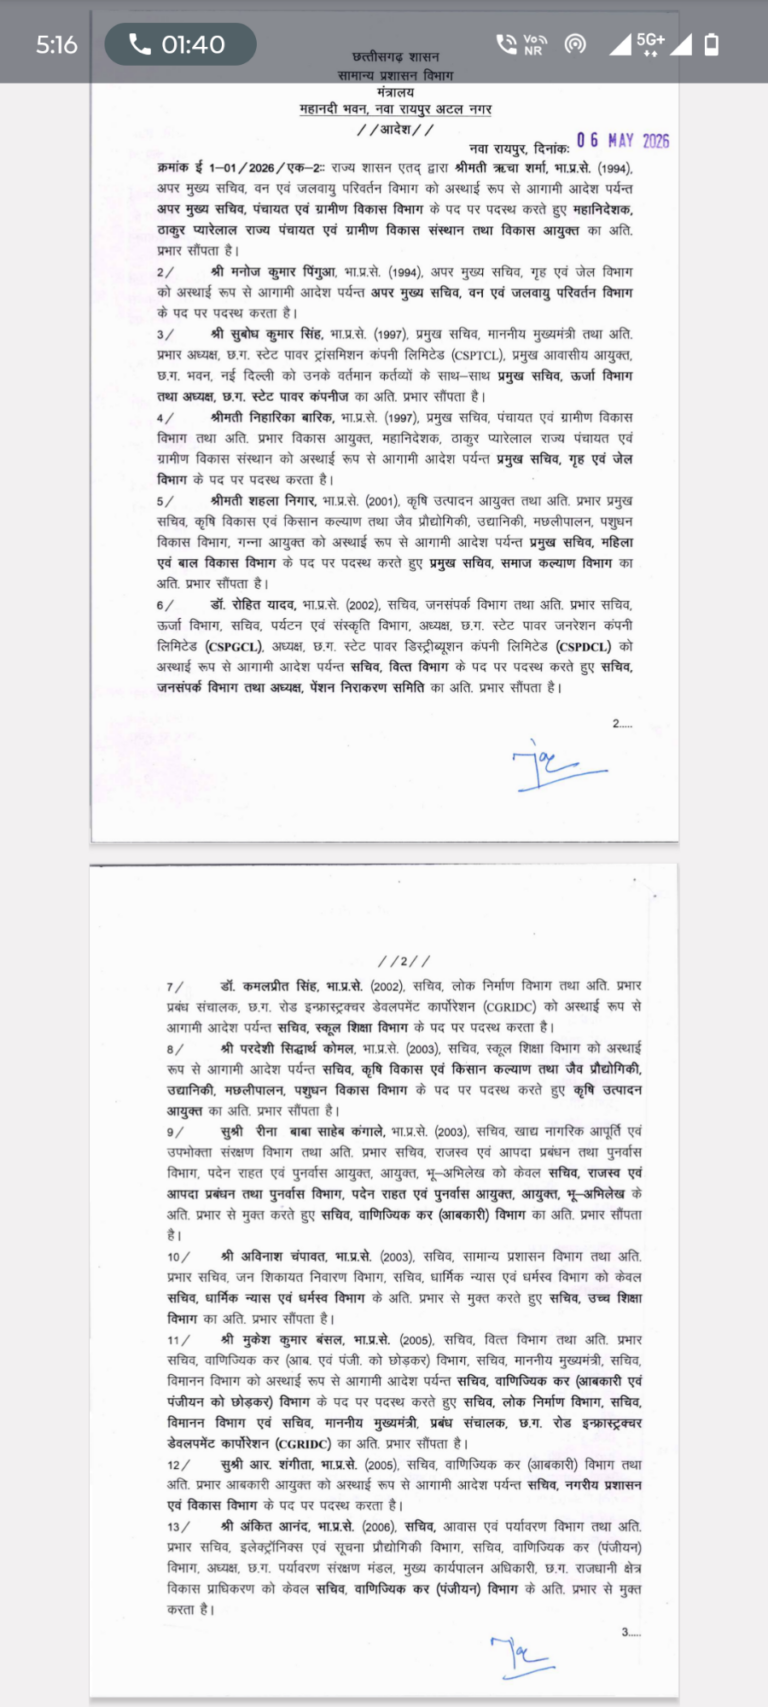 5:16
01:40
Vo
NR
5G+
छत्तीसगढ़ शासन
सामान्य प्रशासन विभाग
मंत्रालय
महानदी भवन, नवा रायपुर अटल नगर
//आदेश//
नवा रायपुर, दिनांकः 06 MAY 2026
क्रमांक ई 1-01/2026/एक-2ः राज्य शासन एतद् द्वारा श्रीमती ऋचा शर्मा, भा.प्र.से. (1994),
अपर मुख्य सचिव, वन एवं जलवायु परिवर्तन विभाग को अस्थाई रूप से आगामी आदेश पर्यन्त
अपर मुख्य सचिव, पंचायत एवं ग्रामीण विकास विभाग के पद पर पदस्थ करते हुए महानिदेशक,
ठाकुर प्यारेलाल राज्य पंचायत एवं ग्रामीण विकास संस्थान तथा विकास आयुक्त का अति.
प्रभार सौंपता है।
2/ श्री मनोज कुमार पिंगुआ, भा.प्र.से. (1994), अपर मुख्य सचिव, गृह एवं जेल विभाग
को अस्थाई रूप से आगामी आदेश पर्यन्त अपर मुख्य सचिव, वन एवं जलवायु परिवर्तन विभाग
के पद पर पदस्थ करता है।
3/ श्री सुबोध कुमार सिंह, भा.प्र.से. (1997), प्रमुख सचिव, माननीय मुख्यमंत्री तथा अति.
प्रभार अध्यक्ष, छ.ग. स्टेट पावर ट्रांसमिशन कंपनी लिमिटेड (CSPTCL), प्रमुख आवासीय आयुक्त,
छ.ग. भवन, नई दिल्ली को उनके वर्तमान कर्तव्यों के साथ-साथ प्रमुख सचिव, ऊर्जा विभाग
तथा अध्यक्ष, छ.ग. स्टेट पावर कंपनीज का अति. प्रभार सौंपता है।
4/ श्रीमती निहारिका बारिक, भा.प्र.से. (1997), प्रमुख सचिव, पंचायत एवं ग्रामीण विकास
विभाग तथा अति. प्रभार विकास आयुक्त, महानिदेशक, ठाकुर प्यारेलाल राज्य पंचायत एवं
ग्रामीण विकास संस्थान को अस्थाई रूप से आगामी आदेश पर्यन्त प्रमुख सचिव, गृह एवं जेल
विभाग के पद पर पदस्थ करता है।
5/ श्रीमती शहला निगार, भा.प्र.से. (2001), कृषि उत्पादन आयुक्त तथा अति. प्रभार प्रमुख
सचिव, कृषि विकास एवं किसान कल्याण तथा जैव प्रौद्योगिकी, उद्यानिकी, मछलीपालन, पशुधन
विकास विभाग, गन्ना आयुक्त को अस्थाई रूप से आगामी आदेश पर्यन्त प्रमुख सचिव, महिला
एवं बाल विकास विभाग के पद पर पदस्थ करते हुए प्रमुख सचिव, समाज कल्याण विभाग का
अति. प्रभार सौंपता है।
6/ डॉ. रोहित यादव, भा.प्र.से. (2002), सचिव, जनसंपर्क विभाग तथा अति. प्रभार सचिव,
ऊर्जा विभाग, सचिव, पर्यटन एवं संस्कृति विभाग, अध्यक्ष, छ.ग. स्टेट पावर जनरेशन कंपनी
लिमिटेड (CSPGCL), अध्यक्ष, छ.ग. स्टेट पावर डिस्ट्रीब्यूशन कंपनी लिमिटेड (CSPDCL) को
अस्थाई रूप से आगामी आदेश पर्यन्त सचिव, वित्त विभाग के पद पर पदस्थ करते हुए सचिव,
जनसंपर्क विभाग तथा अध्यक्ष, पेंशन निराकरण समिति का अति. प्रभार सौंपता है।
2.....
//2//
7/ डॉ. कमलप्रीत सिंह, भा.प्र.से. (2002), सचिव, लोक निर्माण विभाग तथा अति. प्रभार
प्रबंध संचालक, छ.ग. रोड इन्फ्रास्ट्रक्चर डेवलपमेंट कार्पोरेशन (CGRIDC) को अस्थाई रूप से
आगामी आदेश पर्यन्त सचिव, स्कूल शिक्षा विभाग के पद पर पदस्थ करता है।
8/ श्री परदेशी सिद्धार्थ कोमल, भा.प्र.से. (2003), सचिव, स्कूल शिक्षा विभाग को अस्थाई
रूप से आगामी आदेश पर्यन्त सचिव, कृषि विकास एवं किसान कल्याण तथा जैव प्रौद्योगिकी,
उद्यानिकी, मछलीपालन, पशुधन विकास विभाग के पद पर पदस्थ करते हुए कृषि उत्पादन
आयुक्त का अति. प्रभार सौंपता है।
9/ सुश्री रीना बाबा साहेब कंगाले, भा.प्र.से. (2003), सचिव, खाद्य नागरिक आपूर्ति एवं
उपभोक्ता संरक्षण विभाग तथा अति. प्रभार सचिव, राजस्व एवं आपदा प्रबंधन तथा पुनर्वास
विभाग, पदेन राहत एवं पुनर्वास आयुक्त, आयुक्त, भू-अभिलेख को केवल सचिव, राजस्व एवं
आपदा प्रबंधन तथा पुनर्वास विभाग, पदेन राहत एवं पुनर्वास आयुक्त, आयुक्त, भू-अभिलेख के
अति. प्रभार से मुक्त करते हुए सचिव, वाणिज्यिक कर (आबकारी) विभाग का अति. प्रभार सौंपता
है।
10/ श्री अविनाश चंपावत, भा.प्र.से. (2003), सचिव, सामान्य प्रशासन विभाग तथा अति.
प्रभार सचिव, जन शिकायत निवारण विभाग, सचिव, धार्मिक न्यास एवं धर्मस्व विभाग को केवल
सचिव, धार्मिक न्यास एवं धर्मस्व विभाग के अति. प्रभार से मुक्त करते हुए सचिव, उच्च शिक्षा
विभाग का अति. प्रभार सौंपता है।
11/ श्री मुकेश कुमार बंसल, भा.प्र.से. (2005), सचिव, वित्त विभाग तथा अति. प्रभार
सचिव, वाणिज्यिक कर (आब. एवं पंजी. को छोड़कर) विभाग, सचिव, माननीय मुख्यमंत्री, सचिव,
विमानन विभाग को अस्थाई रूप से आगामी आदेश पर्यन्त सचिव, वाणिज्यिक कर (आबकारी एवं
पंजीयन को छोड़कर) विभाग के पद पर पदस्थ करते हुए सचिव, लोक निर्माण विभाग, सचिव,
विमानन विभाग एवं सचिव, माननीय मुख्यमंत्री, प्रबंध संचालक, छ.ग. रोड इन्फ्रास्ट्रक्चर
डेवलपमेंट कार्पोरेशन (CGRIDC) का अति. प्रभार सौंपता है।
12/ सुश्री आर. शंगीता, भा.प्र.से. (2005), सचिव, वाणिज्यिक कर (आबकारी) विभाग तथा
अति. प्रभार आबकारी आयुक्त को अस्थाई रूप से आगामी आदेश पर्यन्त सचिव, नगरीय प्रशासन
एवं विकास विभाग के पद पर पदस्थ करता है।
13/ श्री अंकित आनंद, भा.प्र.से. (2006), सचिव, आवास एवं पर्यावरण विभाग तथा अति.
प्रभार सचिव, इलेक्ट्रॉनिक्स एवं सूचना प्रौद्योगिकी विभाग, सचिव, वाणिज्यिक कर (पंजीयन)
विभाग, अध्यक्ष, छ.ग. पर्यावरण संरक्षण मंडल, मुख्य कार्यपालन अधिकारी, छ.ग. राजधानी क्षेत्र
विकास प्राधिकरण को केवल सचिव, वाणिज्यिक कर (पंजीयन) विभाग के अति. प्रभार से मुक्त
करता है।
3.....